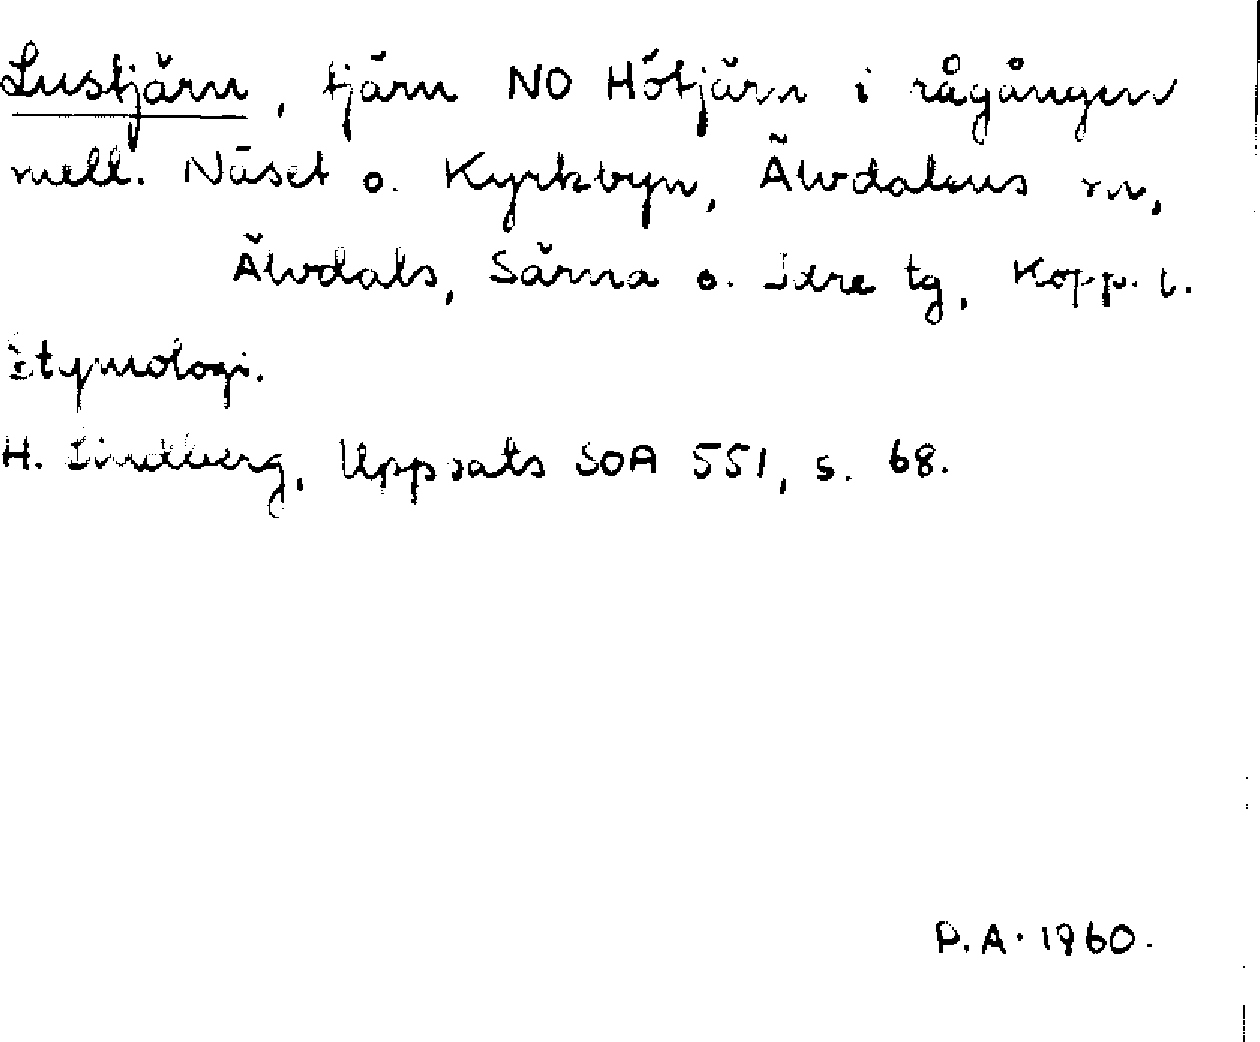 Lustjärn, tjärn NO Hötjärn i rågången
mell. Näset o. Kyrkbyn, Älvdalens sn,
Älvdals, Särna o. Idre tg, Kopp. l.
Etymologi.
H. Lindberg, Uppsats SOA 551, s. 68.
P.A. 1960.